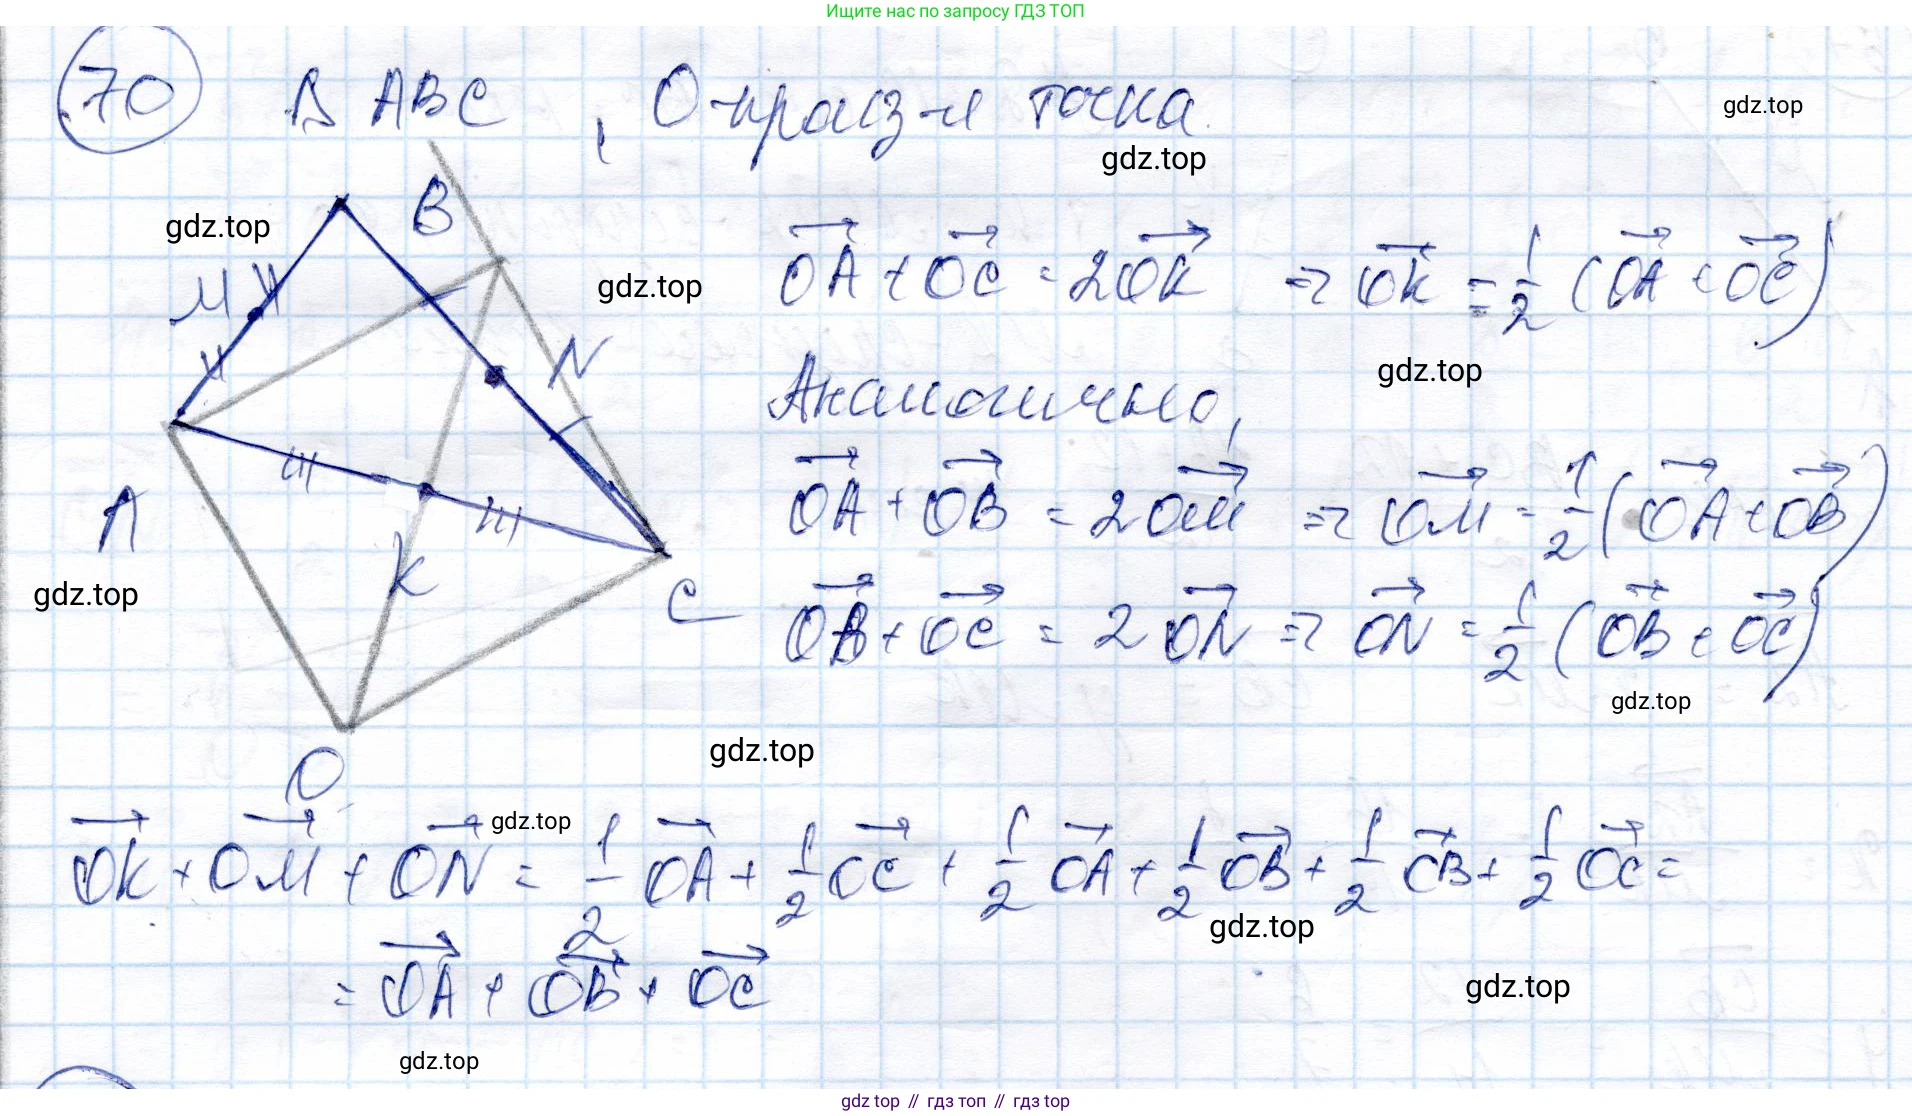 Ищите нас по запросу ГДЗ ТОП
70 Δ ABC, О-произ-я точка
gdz.top
gdz.top
B
gdz.top
M
gdz.top
OA + OC = 2OK => OK = 1/2 (OA + OC).
gdz.top
N
Аналогично,
A
K
OA + OB = 2OM => OM = 1/2 (OA + OB)
gdz.top
C
OB + OC = 2ON => ON = 1/2 (OB + OC)
gdz.top
gdz.top
O
gdz.top
OK + OM + ON = 1/2 OA + 1/2 OC + 1/2 OA + 1/2 OB + 1/2 OB + 1/2 OC =
gdz.top
= OA + OB + OC
gdz.top
gdz.top
gdz top // гдз топ // гдз top